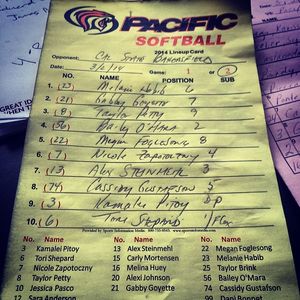 PACIFIC
SOFTBALL
2014 Lineup Card
Opponent: Cal State Bakersfield
Date: 3/6/14 Game: or 2
NO. NAME POSITION SUB
1. (23) Melanie Habib 6
2. (21) Gabby Goyette 7
3. (8) Taylor Petty 9
4. (56) Bailey O'Mara 2
5. (22) Megan Foglesong 8
6. (7) Nicole Zapotoczny 4
7. (13) Alex Steinmehl 3
8. (74) Cassidy Gustafson 5
9. (3) Kamalei Pitoy DP
10. (6) Tori Shepard 1/Flex
Provided by Sports Information Media
No. Name No. Name No. Name
3 Kamalei Pitoy 13 Alex Steinmehl 22 Megan Foglesong
6 Tori Shepard 15 Carly Mortensen 23 Melanie Habib
7 Nicole Zapotoczny 16 Melina Huey 25 Taylor Brink
8 Taylor Petty 20 Alexi Johnson 56 Bailey O'Mara
10 Jessica Pasco 21 Gabby Goyette 74 Cassidy Gustafson
12 Sara Anderson 99 Dani Bonnet